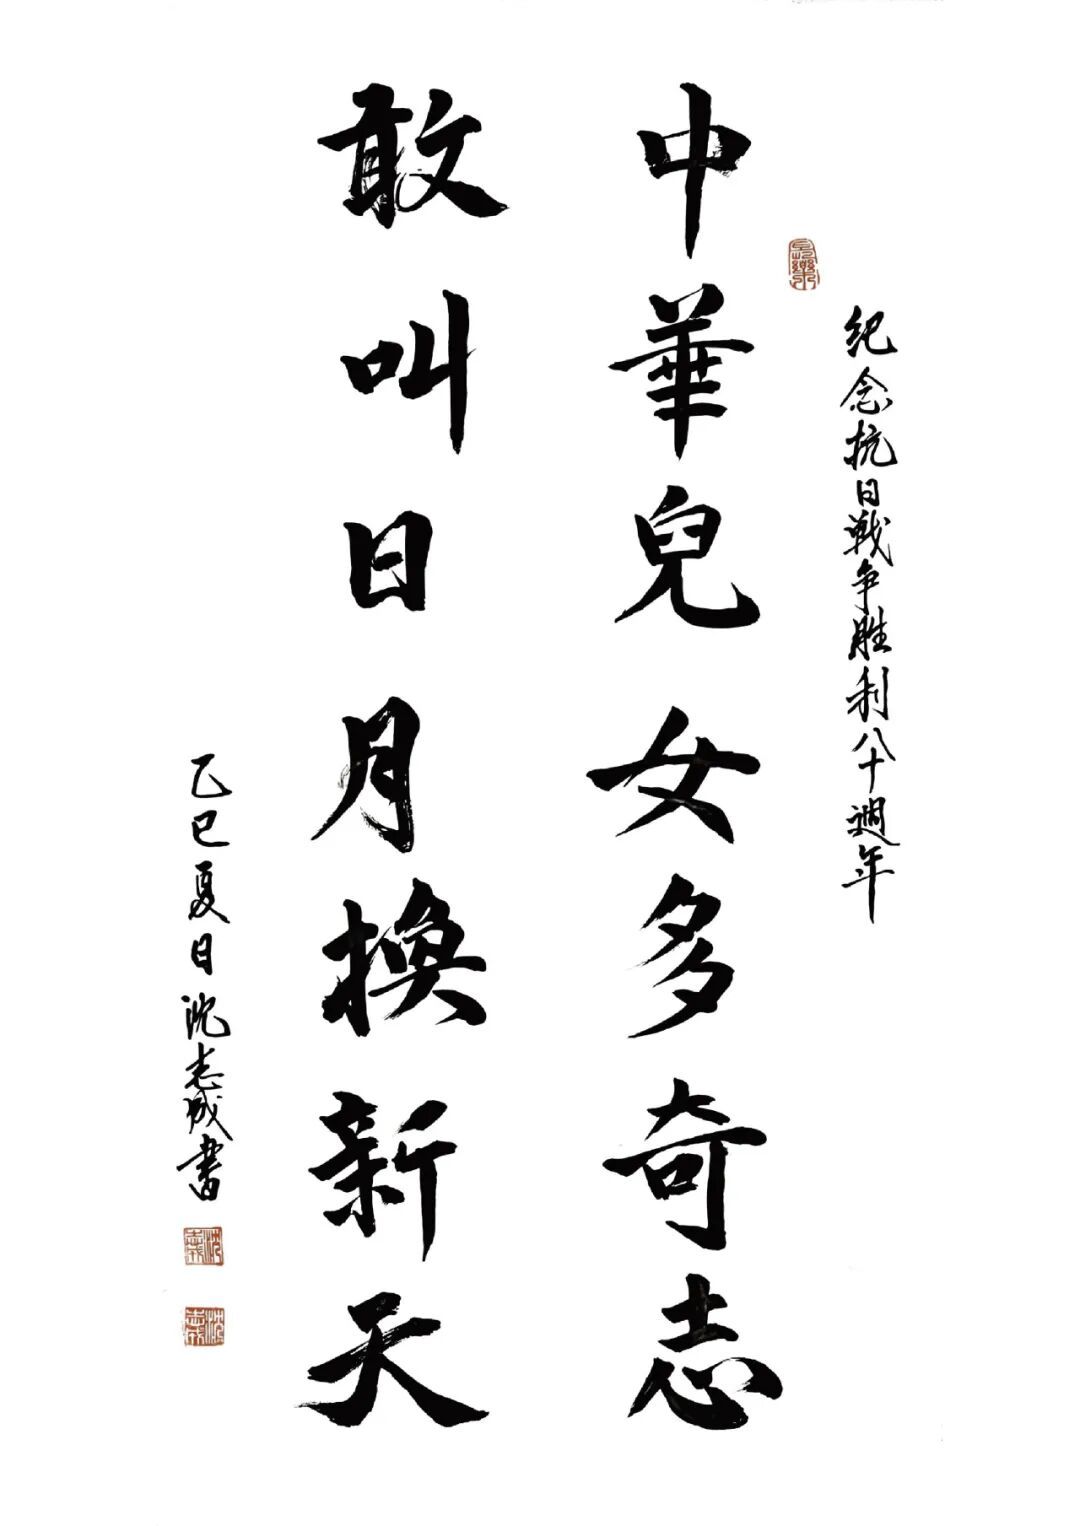 紀念抗日戰争胜利八十週年
中華兒女多奇志
敢叫日月換新天
乙巳夏日沈志成書